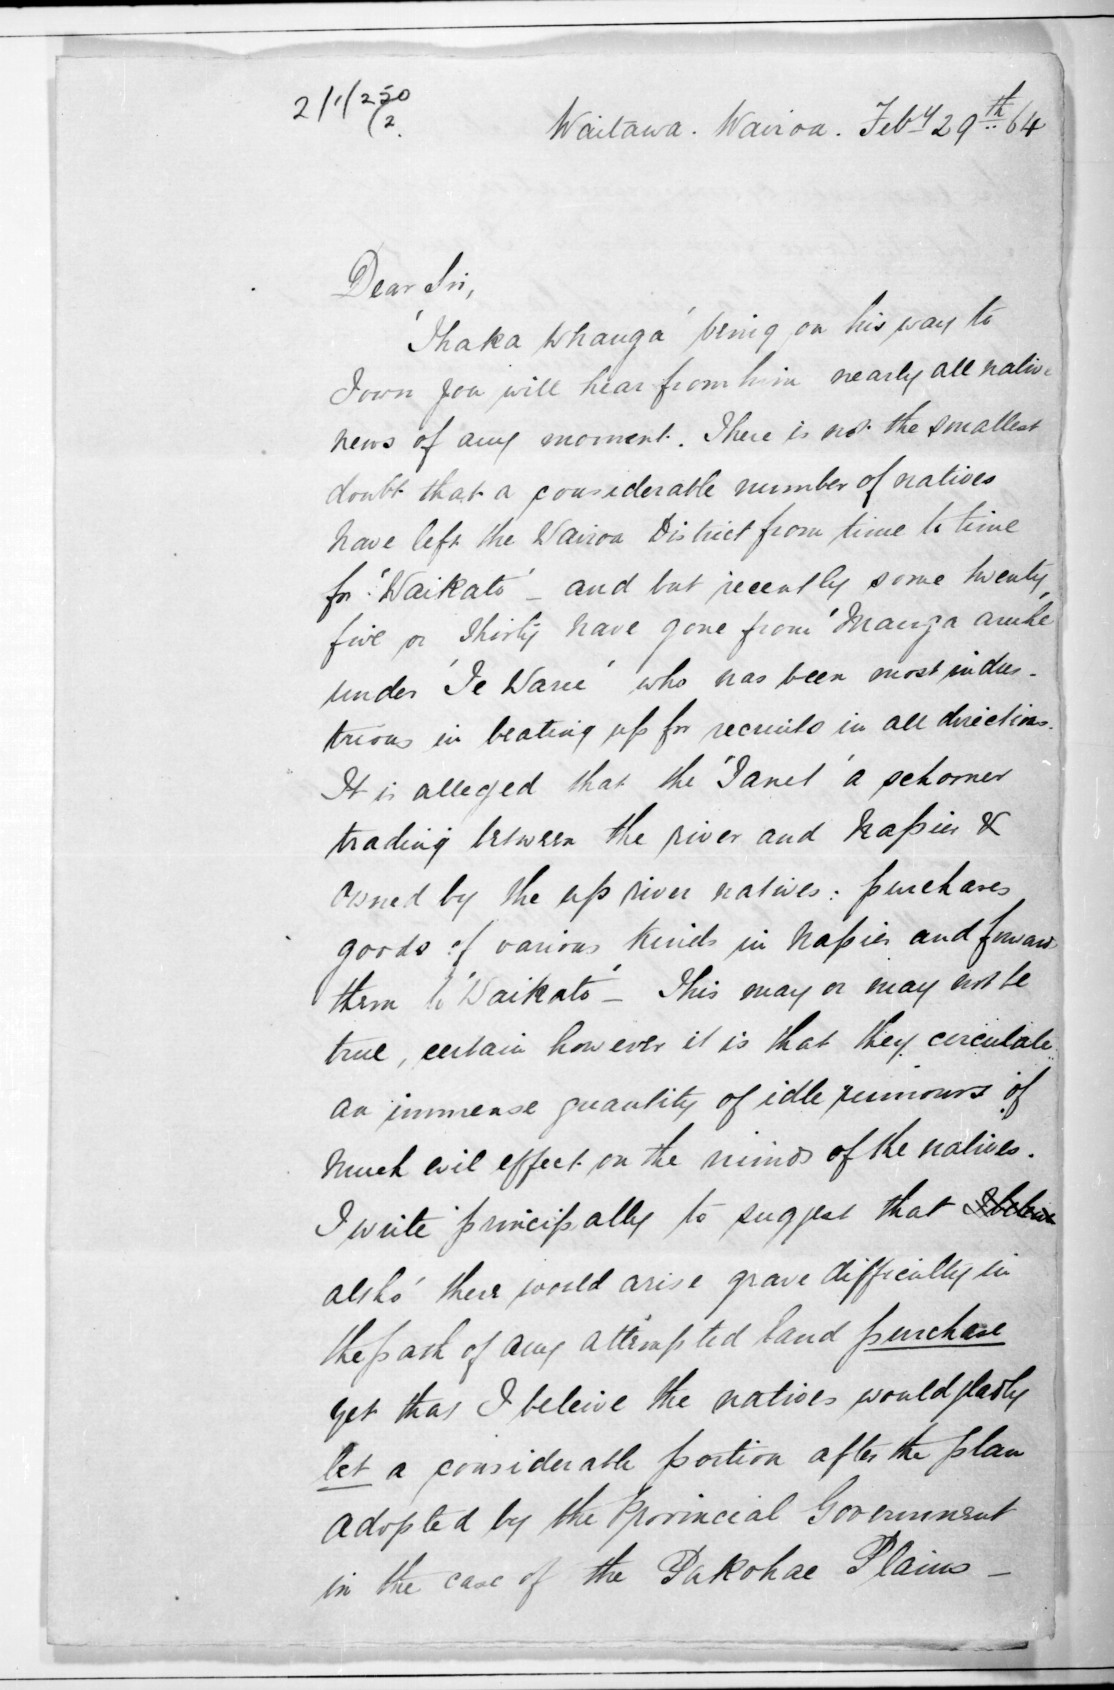 2/1/250
/2.
Waitawa. Wairoa. Feby 29th 64
Dear Sir,
'Ihaka Whanga' being on his way to
Town you will hear from him nearly all native
news of any moment. There is not the smallest
doubt that a considerable number of natives
have left the Wairoa District from time to time
for 'Waikato' _ and but recently some twenty
five or thirty have gone from 'Manga aruhe'
under 'Te Waru' who has been most indus-
trious in beating up for recruits in all directions.
It is alleged that the 'Janet' a schooner
trading between the river and Napier &
owned by the up river natives: purchases
goods of various kinds in Napier and forward
them to 'Waikato' _ This may or may not be
true, certain however it is that they circulate
an immense quantity of idle rumours of
much evil effect on the minds of the natives.
I write principally to suggest that I beleive
altho' there would arise grave difficulty in
the path of any attempted land purchase
yet that I beleive the natives would gladly
let a considerable portion after the plan
adopted by the Provincial Government
in the case of the Pakohae Plains _